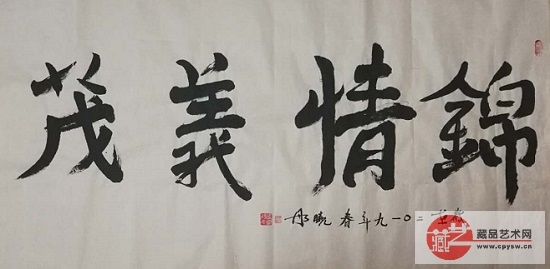 錦情義茂
二〇一九年春
藏艺
藏品艺术网
www.cpysw.cn